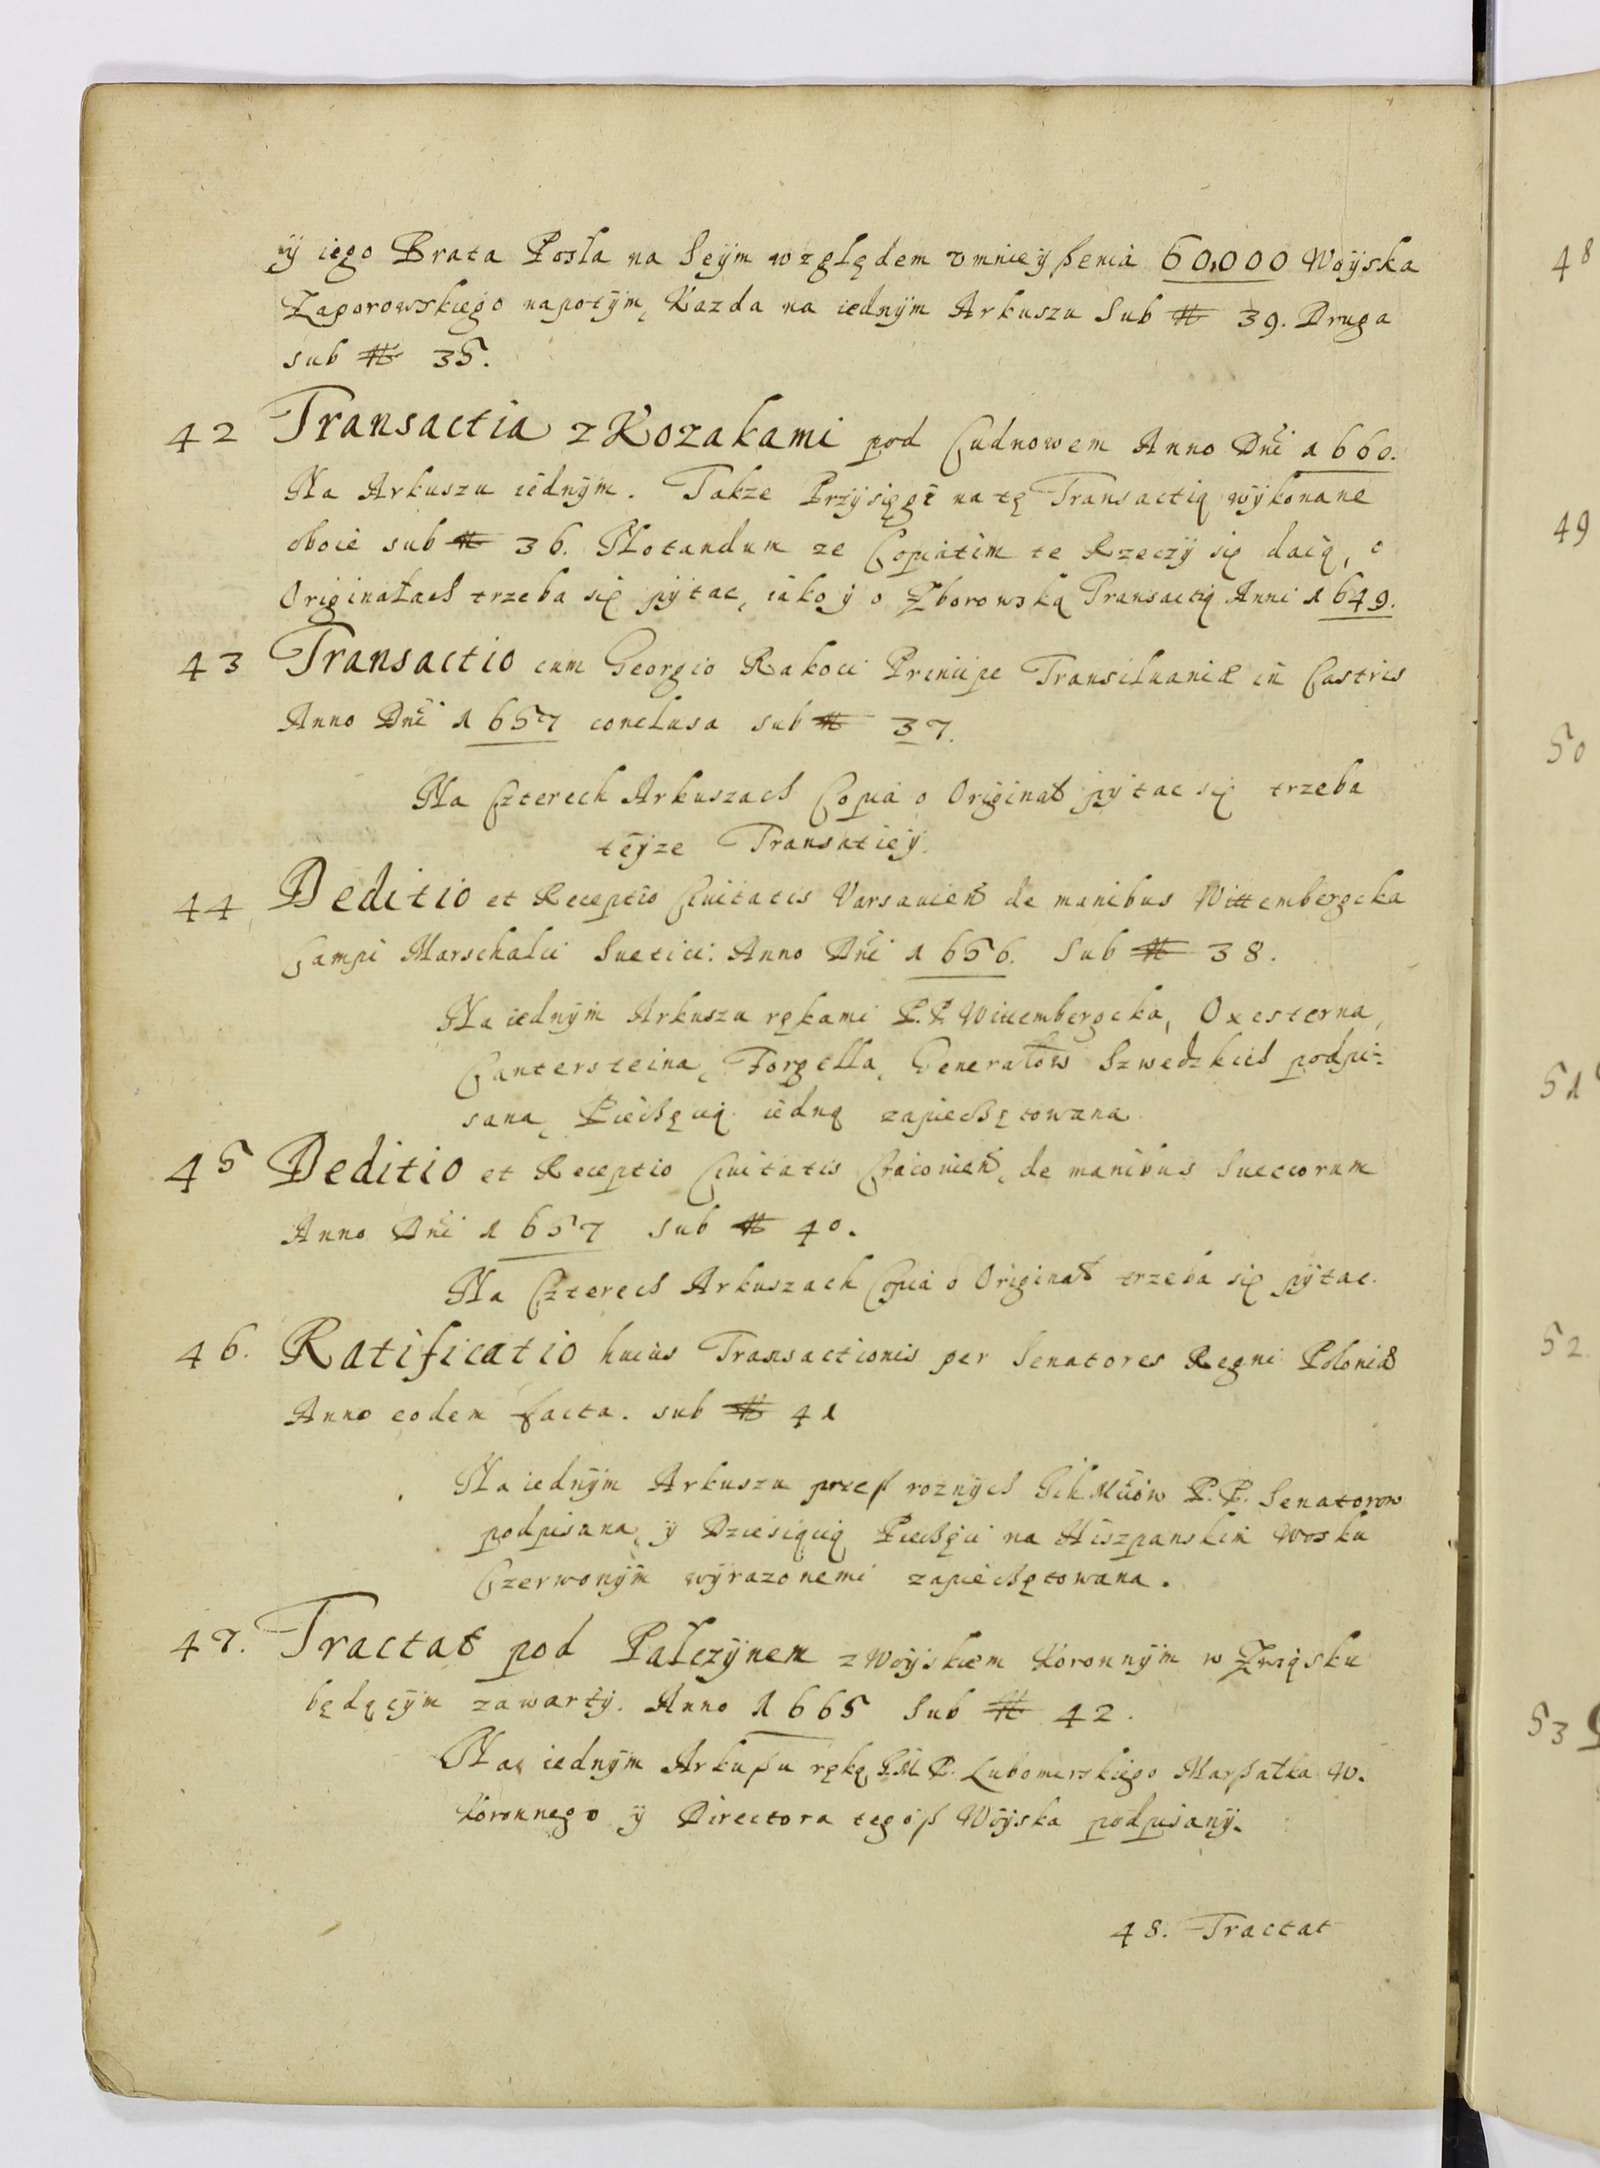 ÿ iego Brata Posła na Seÿm względem vmnieÿßenia 60,000 Woÿska
Zaporowskiego napotÿm, Kazda na iednÿm Arkuszu Sub # 39. Druga
sub # 35.
42 Transactia z Kozakami pod Cudnowem Anno Dni 1660.
Na Arkuszu iednÿm. Takze Przÿsięgi na tę Transactią wÿkonane
oboie sub # 36. Notandum ze Copiatim te Rzeczÿ się daią, o
Originałach trzeba się pÿtac, iako ÿ o Zborowską Transactią Anni 1649.
43 Transactio cum Georgio Rakoci Principe Transiluaniæ in Castris
Anno Dni 1657 conclusa sub # 37.
Na Czterech Arkuszach Copia o Originał pÿtac się trzeba
teÿze Transatieÿ.
44 Deditio et Receptio Ciuitatis Varsauien de manibus Wittembergcka
Campi Marschalci Suetici: Anno Dni 1656. Sub # 38.
Na iednÿm Arkuszu rękami P.P. Wittembergcka, Oxesterna,
Cantersteina, Forgella, Generałow Szwedzkich podpi-
sana, Piechęcią iedną zapiechętowana
45 Deditio et Receptio Ciuitatis Cracouien, de manibus Sueccorum
Anno Dni 1657 sub # 40.
Na Czterech Arkuszach Copia o Originał trzeba się pÿtac.
46. Ratificatio huius Transactionis per Senatores Regni Poloniæ
Anno eodem facta. sub # 41
Na iednÿm Arkuszu przeß roznÿch P.P. Senatorow
podpisana, ÿ Dziesiącią Piechęci na Hiszpanskim Wosku
Czerwonÿm wÿrazonemi zapiechętowana.
47. Tractat pod Palczÿnem z Woÿskiem Koronnÿm w Związku
będącÿm zawartÿ. Anno 1665 Sub # 42.
Na iednÿm Arkußu ręką J.M.P. Lubomirskiego Marßałka W.
Koronnego ÿ Directora tegoß Woÿska podpisanÿ.
48. Tractat
48
49
50
51
52
53